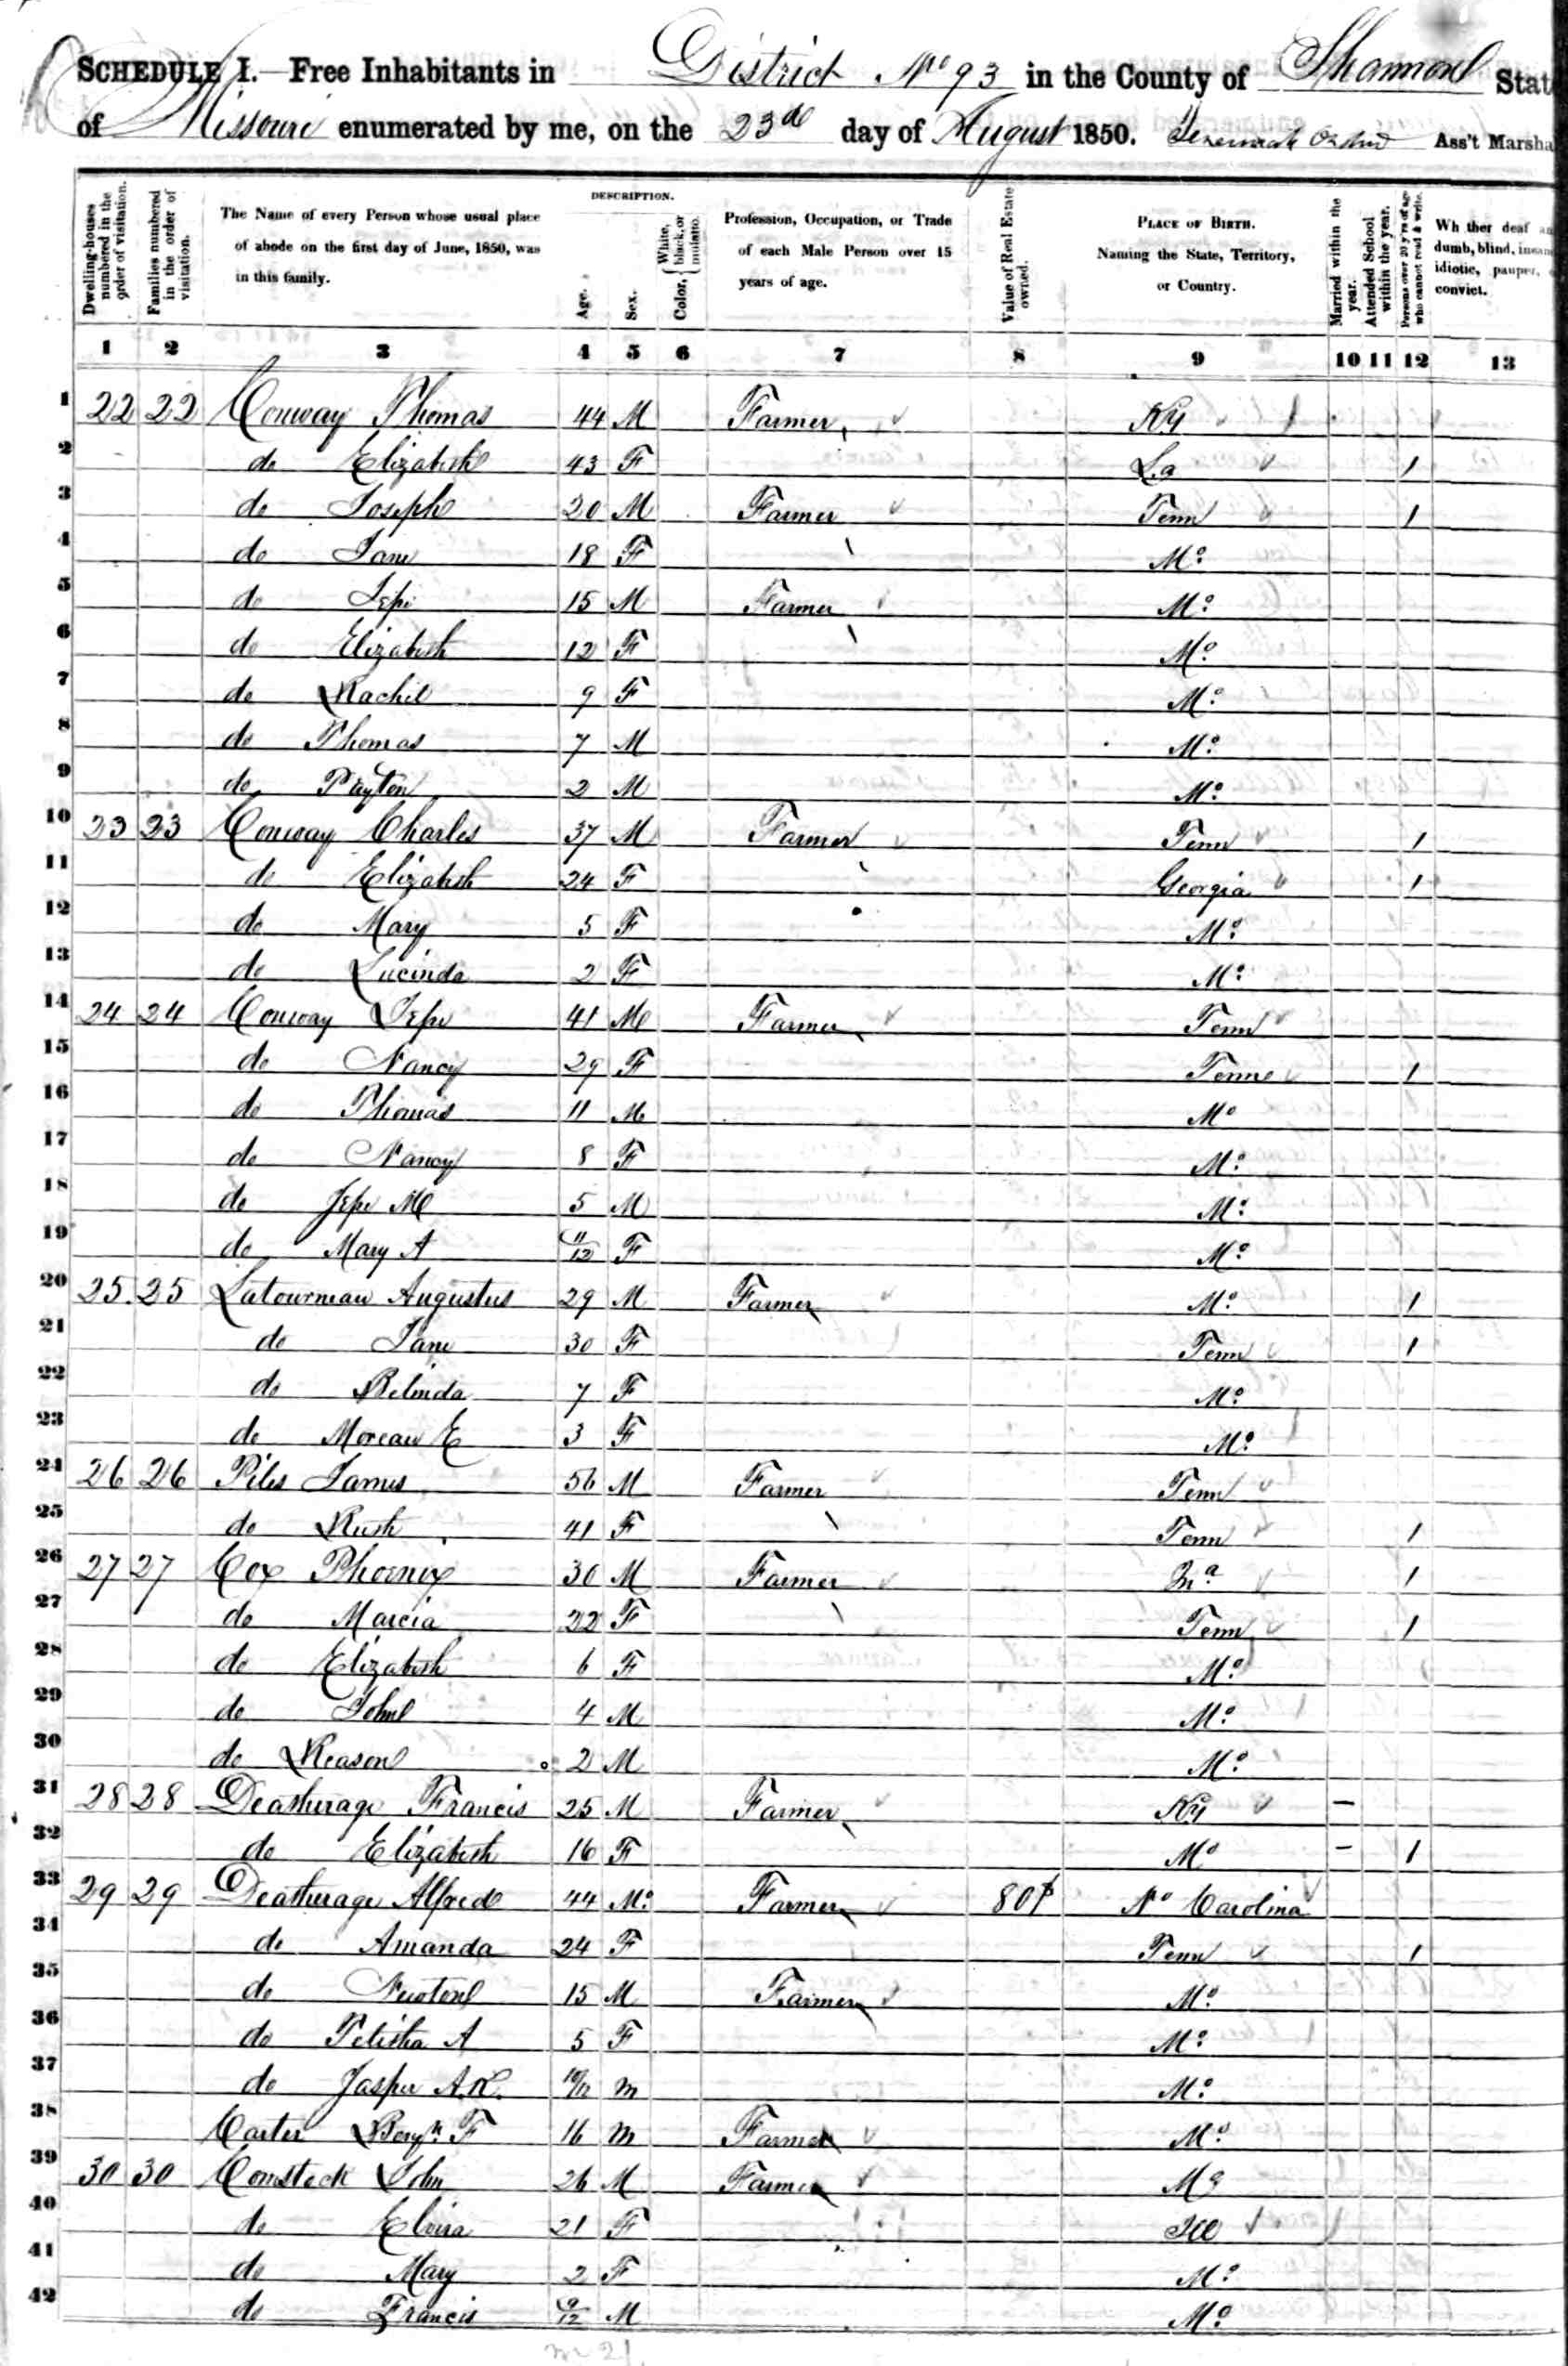 SCHEDULE I. Free Inhabitants in District No 93 in the County of Shannon State
of Missouri enumerated by me, on the 23d day of August 1850. Jeremiah Ass't Marshal
Dwelling-houses numbered in the order of visitation.
Families numbered in the order of visitation.
The Name of every Person whose usual place of abode on the first day of June, 1850, was in this family.
DESCRIPTION.
Age.
Sex.
Color, { White, black, or mulatto.
Profession, Occupation, or Trade of each Male Person over 15 years of age.
Value of Real Estate owned.
PLACE OF BIRTH. Naming the State, Territory, or Country.
Married within the year.
Attended School within the year.
Persons over 20 y'rs of age who cannot read & write.
Wh ther deaf an dumb, blind, insane idiotic, pauper, convict.
1 2 3 4 5 6 7 8 9 10 11 12 13
1 22 22 Conway Thomas 44 M Farmer Ky
2 do Elizabeth 43 F La 1
3 do Joseph 20 M Farmer Tenn 1
4 do Jane 18 F Mo
5 do Jesse 15 M Farmer Mo
6 do Elizabeth 12 F Mo
7 do Rachel 9 F Mo
8 do Thomas 7 M Mo
9 do Payton 2 M Mo
10 23 23 Conway Charles 37 M Farmer Tenn 1
11 do Elizabeth 24 F Georgia 1
12 do Mary 5 F Mo
13 do Lucinda 2 F Mo
14 24 24 Conway Jesse 41 M Farmer Tenn
15 do Nancy 29 F Tenne 1
16 do Thomas 11 M Mo
17 do Nancy 8 F Mo
18 do Jesse M 5 M Mo
19 do Mary A 11/12 F Mo
20 25 25 Latourneau Augustus 29 M Farmer Mo 1
21 do Jane 30 F Tenn 1
22 do Belinda 7 F Mo
23 do Moreau E 3 F Mo
24 26 26 Piles James 56 M Farmer Tenn
25 do Ruth 41 F Tenn 1
26 27 27 Cox Phoenix 30 M Farmer 1
27 do Marcia 22 F Tenn 1
28 do Elizabeth 6 F Mo
29 do John 4 M Mo
30 do Reason 2 M Mo
31 28 28 Deatherage Francis 25 M Farmer Ky –
32 do Elizabeth 16 F Mo – 1
33 29 29 Deatherage Alfred 44 M Farmer 80$ No Carolina
34 do Amanda 24 F Tenn 1
35 do Newton 15 M Farmer Mo
36 do Telitha A 5 F Mo
37 do Jasper A.R. 10/12 m Mo
38 Carter Benjn F 16 m Farmer Mo
39 30 30 Comstock John 26 M Farmer Mo
40 do Elvira 21 F Ill
41 do Mary 2 F Mo
42 do Francis 9/12 M Mo